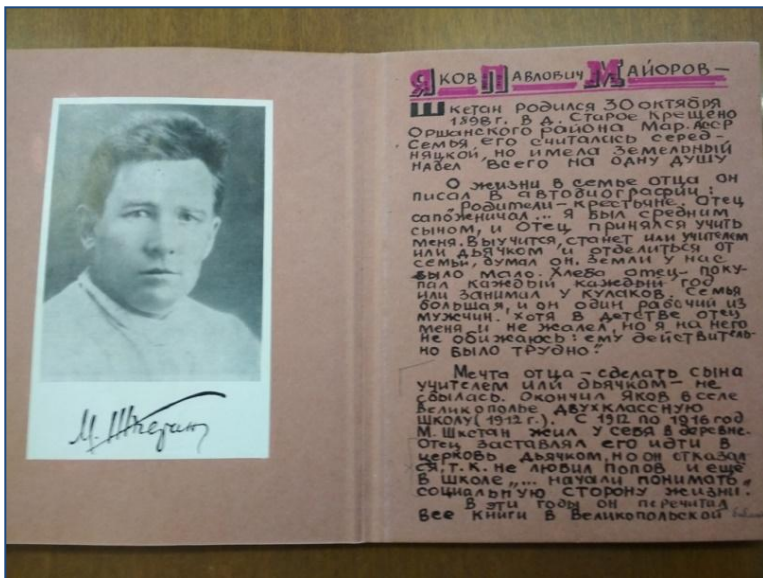 М. Шкетан
Яков Павлович Майоров –
Шкетан родился 30 октября
1898 г. в д. Старое Крещено
Оршанского района Мар. АССР
Семья его считалась серед-
няцкой, но имела земельный
надел всего на одну душу
О жизни в семье отца он
писал в автобиографии:
"Родители – крестьяне. Отец
сапожничал... Я был средним
сыном, и отец принялся учить
меня. Выучится, станет или учителем
или дьячком и отделиться от
семьи, думал он. Земли у нас
было мало. Хлеба отец поку-
пал каждый каждый год
или занимал у кулаков. Семья
большая, и он один рабочий из
мужчин. Хотя в детстве отец
меня и не жалел, но я на него
не обижаюсь: ему действитель-
но было трудно."
Мечта отца – сделать сына
учителем или дьячком – не
сбылась. Окончил Яков в селе
Великополье двухклассную
школу (1912 г.). С 1912 по 1916 год
М. Шкетан жил у себя в деревне.
Отец заставлял его идти в
церковь дьячком, но он отказал
ся, т. к. не любил попов и ещё
в школе „... начали понимать
социальную сторону жизни.
В эти годы он перечитал
все книги в Великопольской